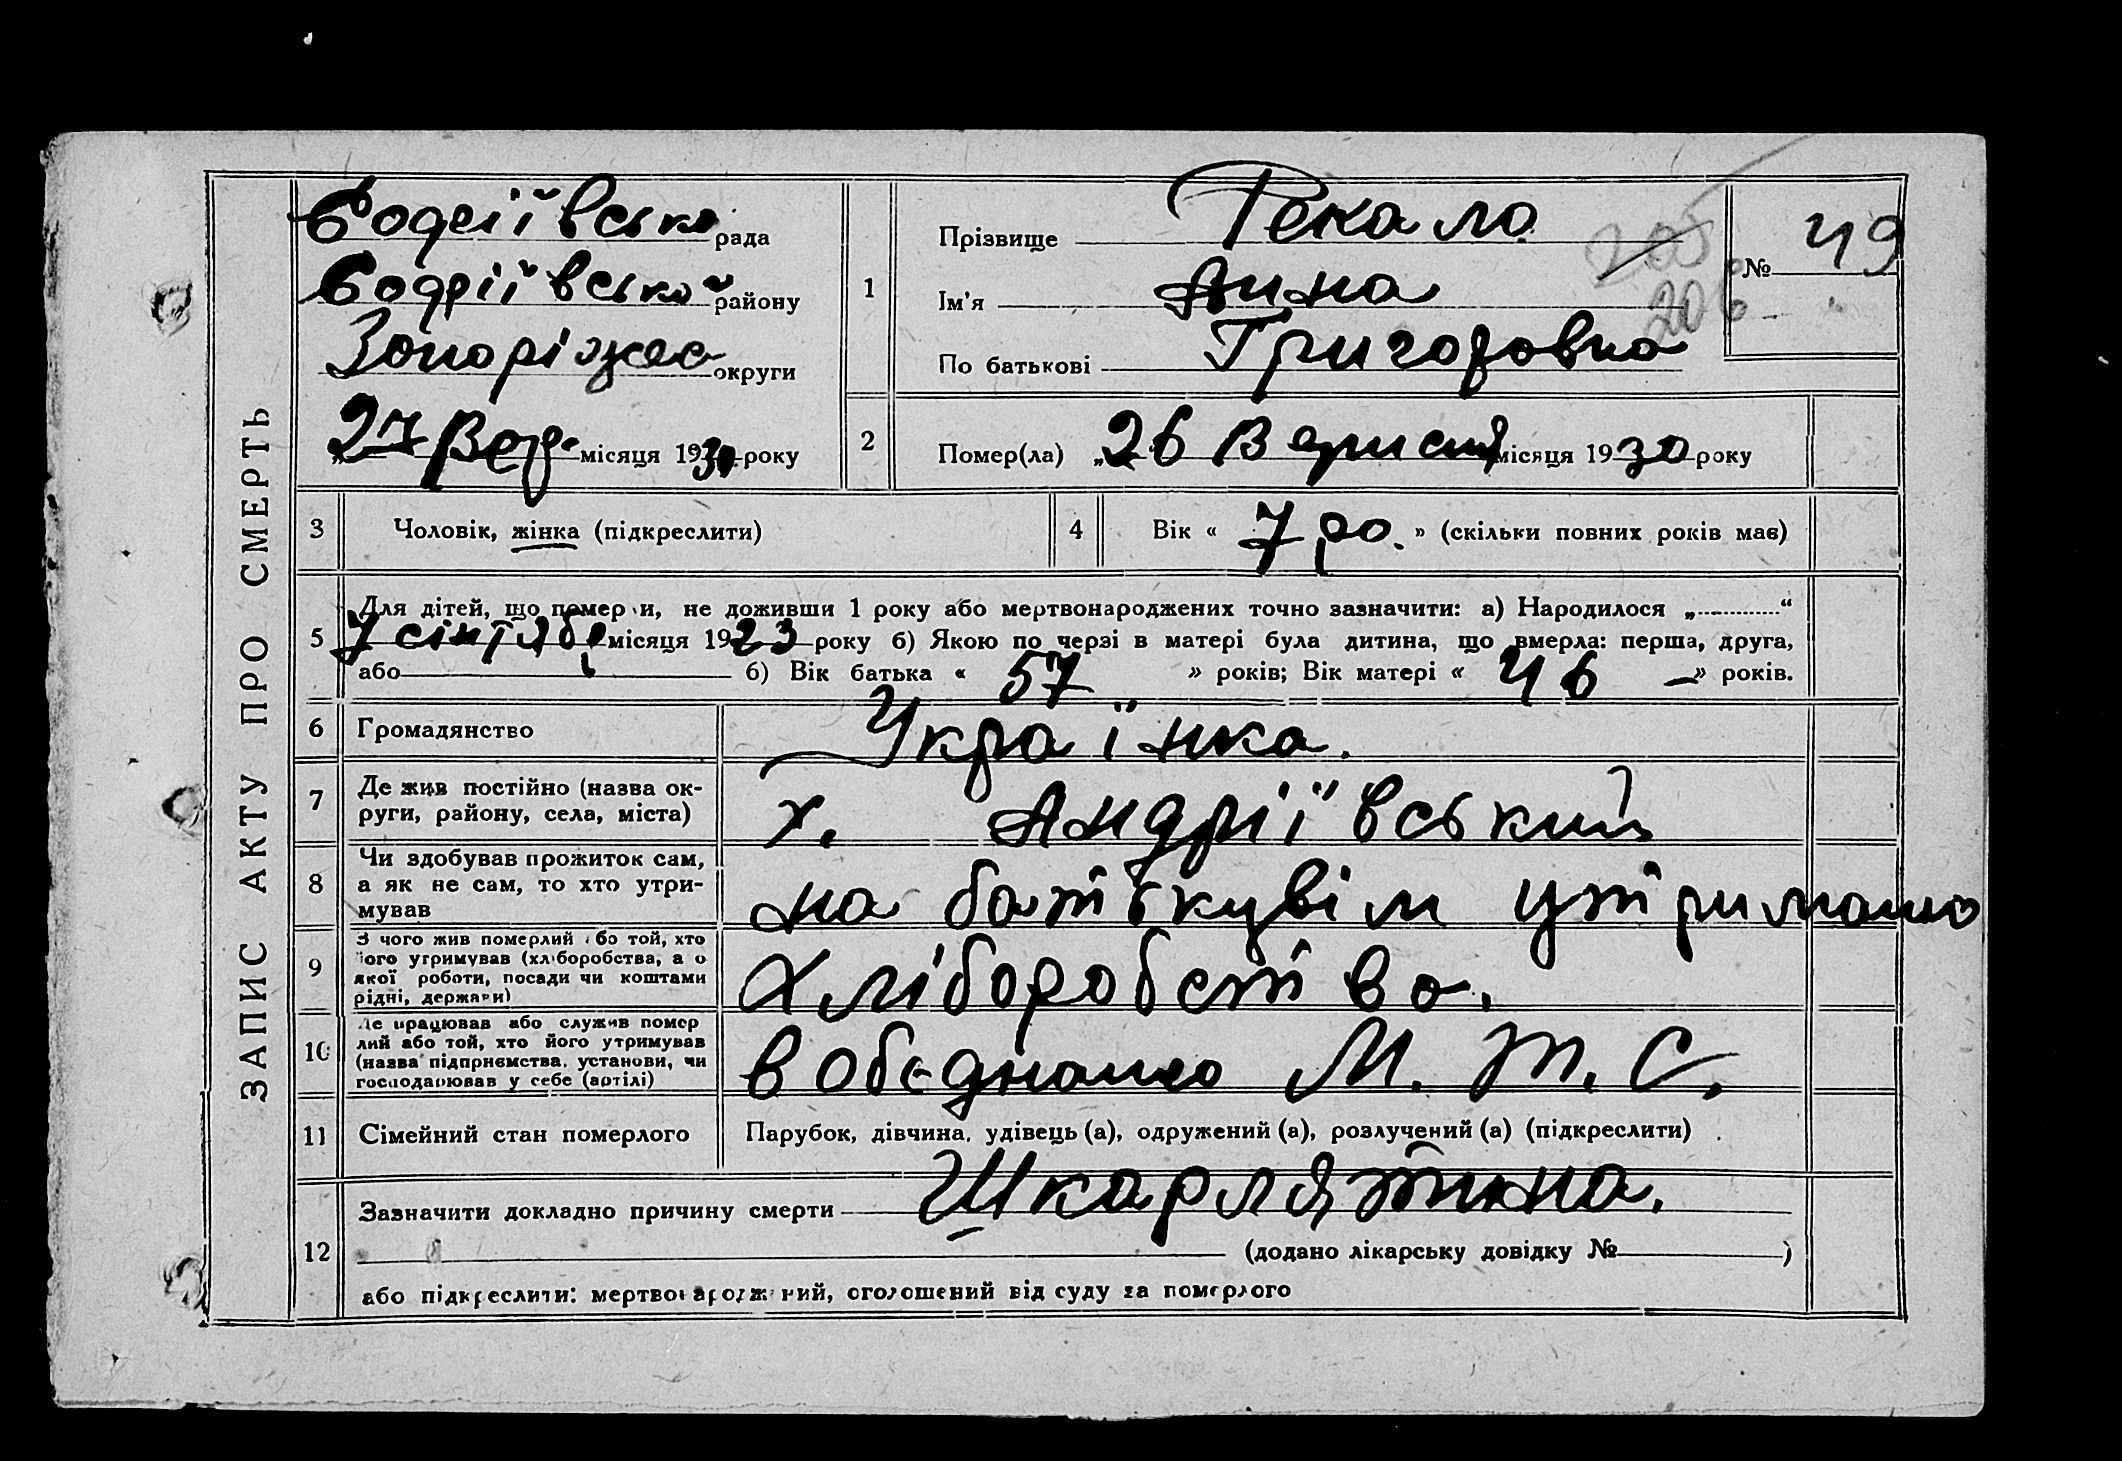 ЗАПИС АКТУ ПРО СМЕРТЬ
рада
району
округи
27 Вер. місяця 1930 року
1
Прізвище Рекало
Ім'я
По батькові Григоровна
№ 49
205
206
2
Помер(ла) „26 місяця 1930 року
3
Чоловік, жінка (підкреслити)
4
Вік « 7 ро. » (скільки повних років мав)
5
Для дітей, що померли, не доживши 1 року або мертвонароджених точно зазначити: а) Народилося „ “
7 сінтябр місяця 1923 року б) Якою по черзі в матері була дитина, що вмерла: перша, друга,
або б) Вік батька « 57 » років; Вік матері « 46 » років.
6
Громадянство
Українка.
7
Де жив постійно (назва ок-
руги, району, села, міста)
х. Андріївський
8
Чи здобував прожиток сам,
а як не сам, то хто утри-
мував
на батькувім утримано
9
З чого жив померлий або той, хто
його утримував (хліборобства, а о
якої роботи, посади чи коштами
рідні, держави)
Хліборобство.
10
Де працював або служив помер
лий або той, хто його утримував
(назва підприємства, установи, чи
господарював у себе (артілі)
в М. Т. С.
11
Сімейний стан померлого
Парубок, дівчина, удівець (а), одружений (а), розлучений (а) (підкреслити)
12
Зазначити докладно причину смерти Шкарлятина.
(додано лікарську довідку № )
або підкреслити: мертвонароджений, оголошений від суду за померлого